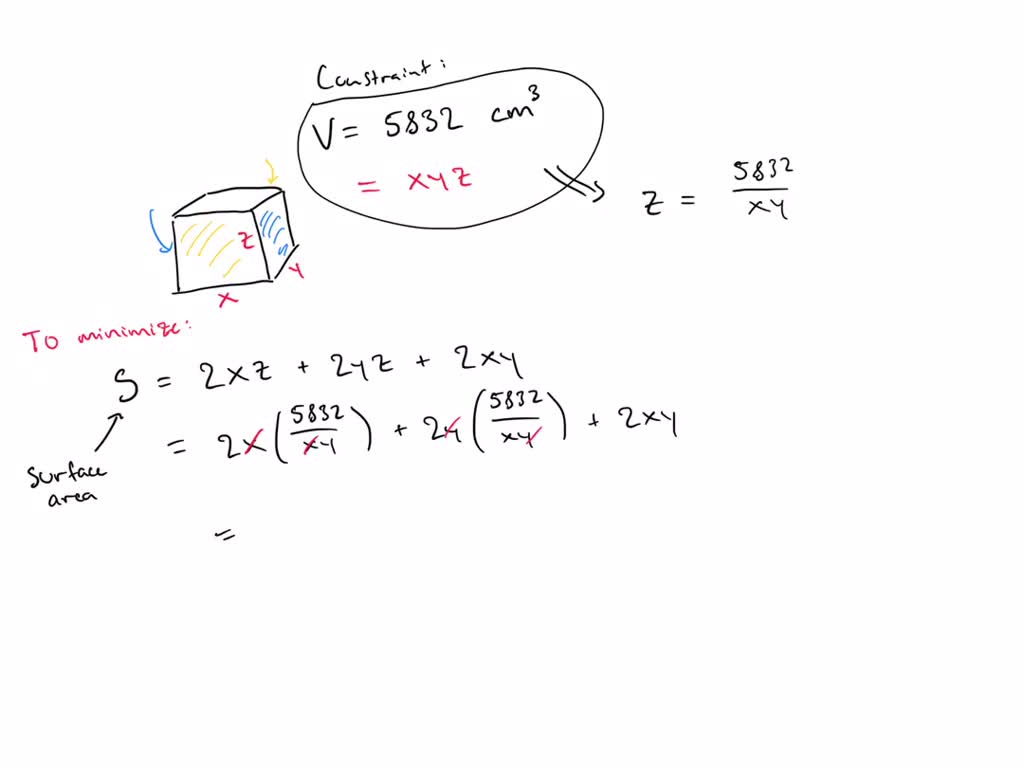 Constraint:
V = 5832 cm³
= xyz
z = 5832/xy
z
y
x
To minimize:
S = 2xz + 2yz + 2xy
= 2x (5832/xy) + 2y (5832/xy) + 2xy
Surface
area
=